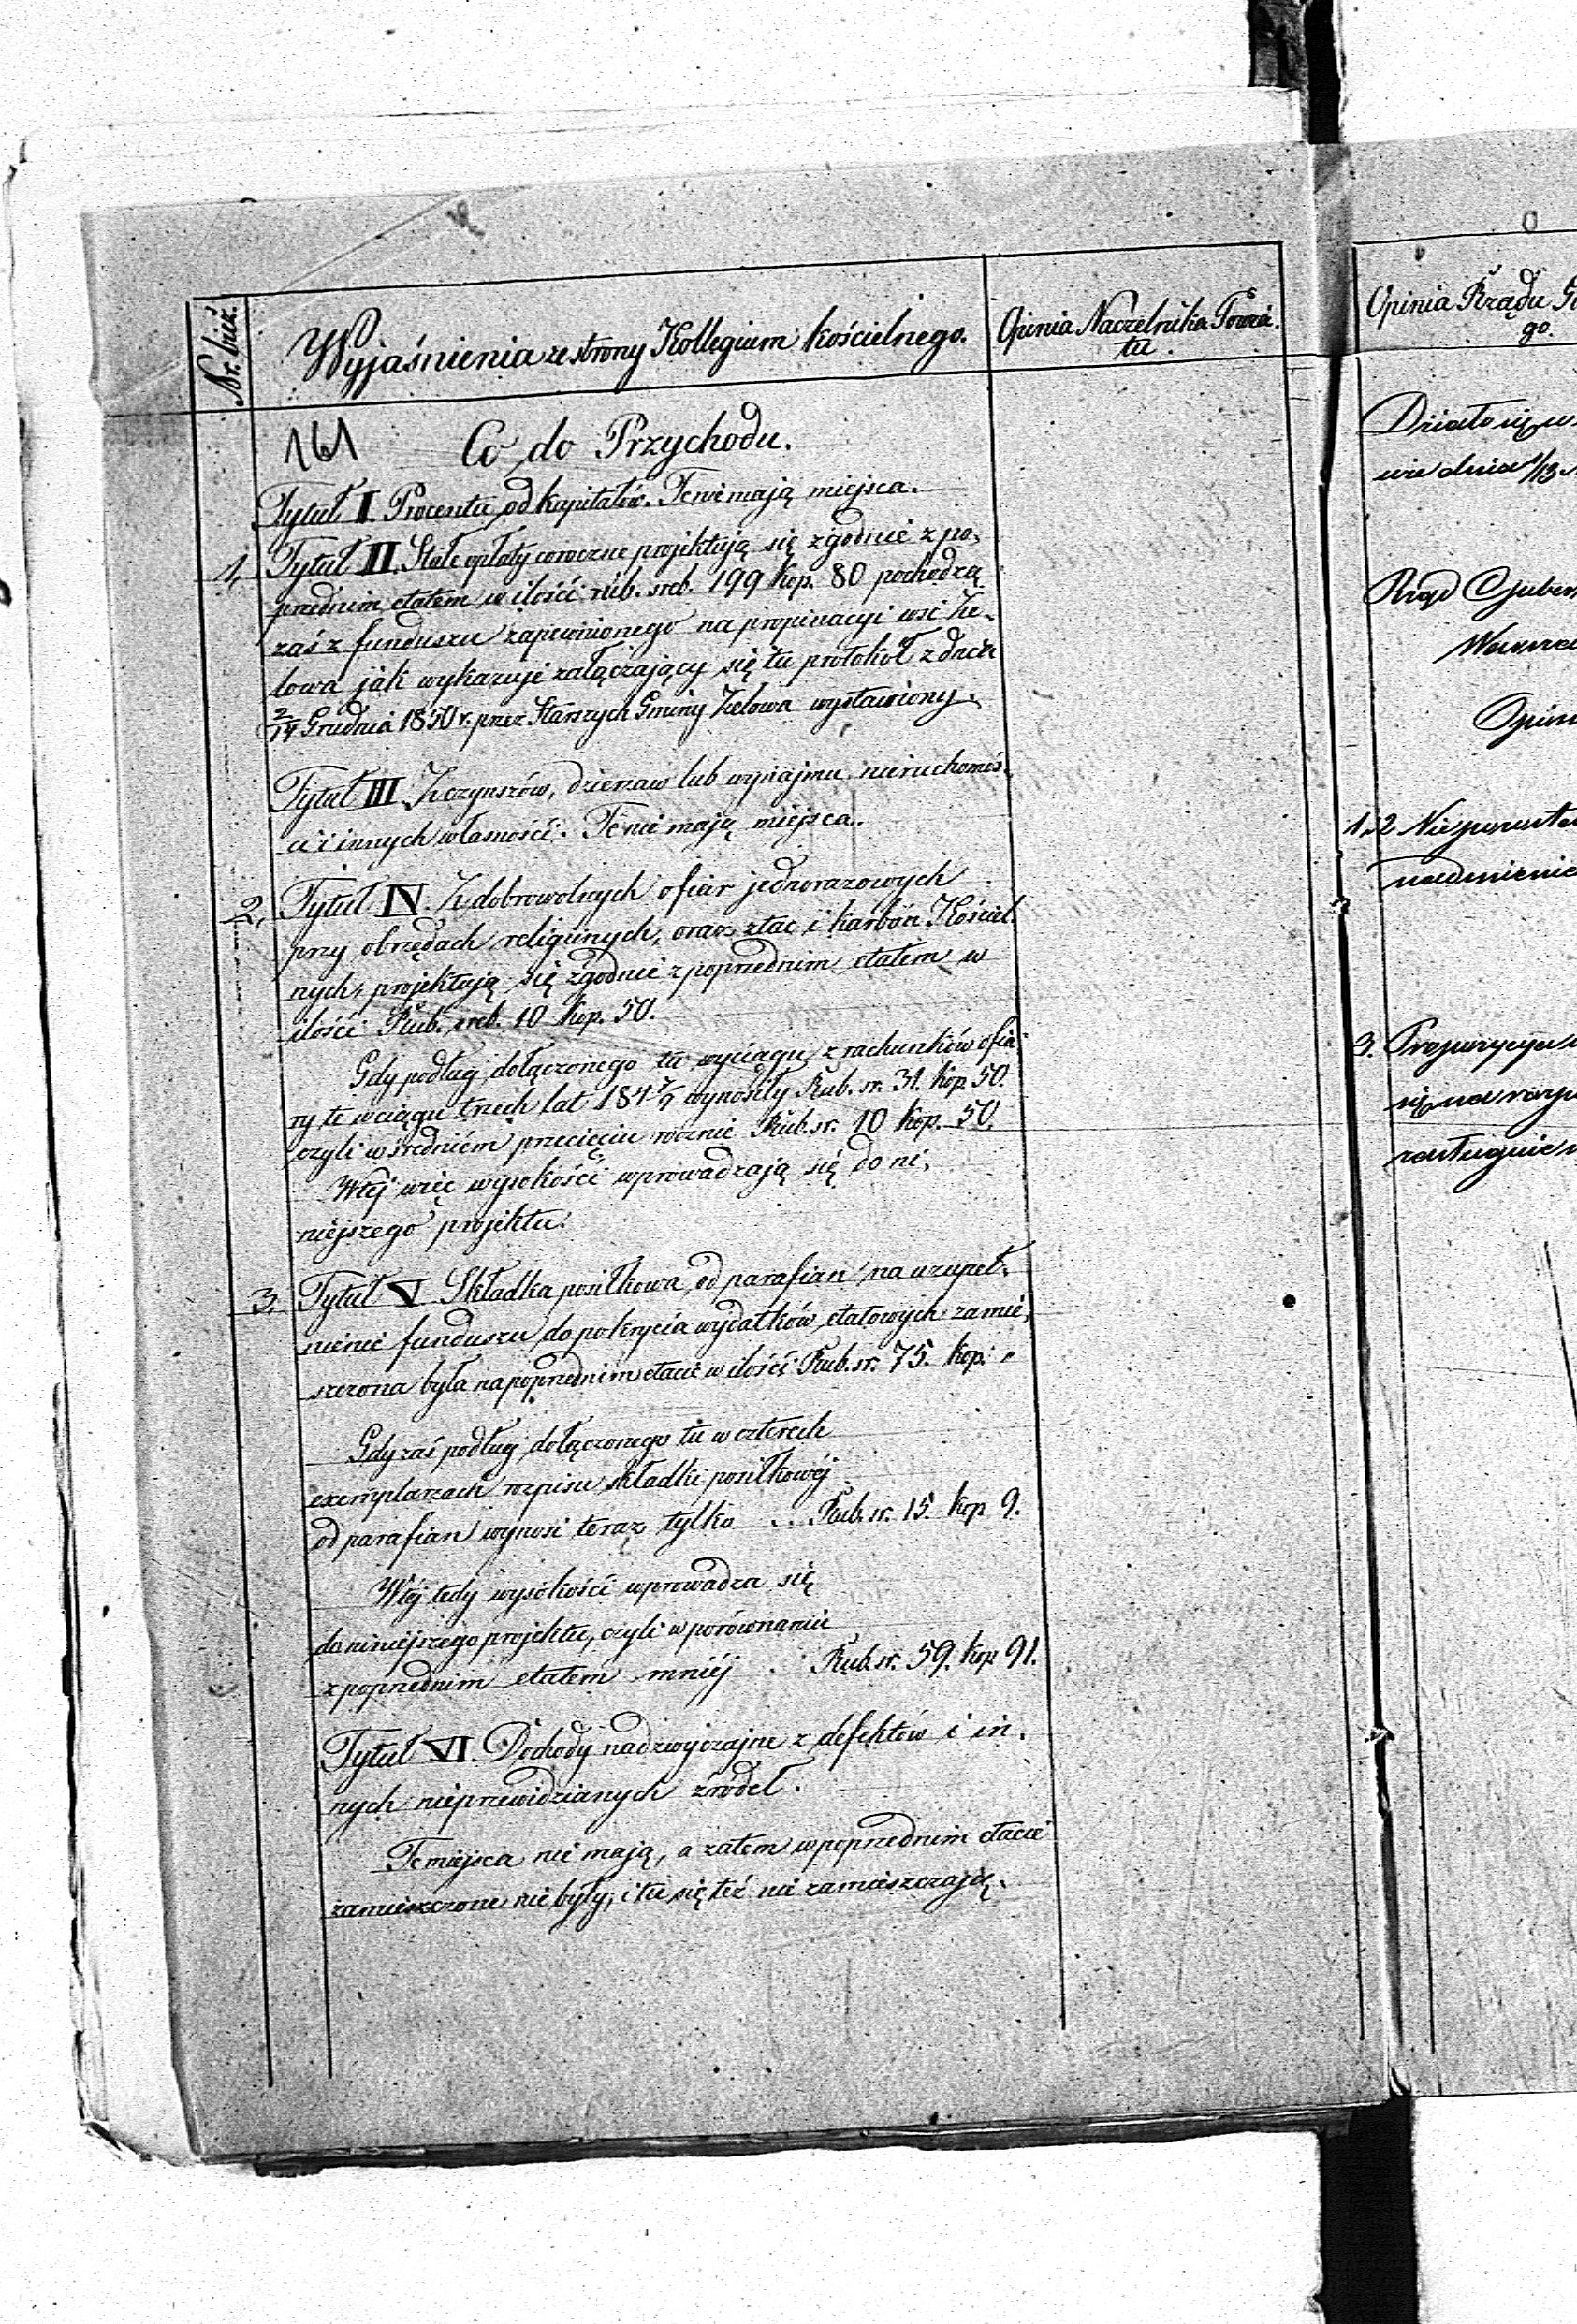 Nr. bież.
Wyjaśnienia ze strony Kollegium kościelnego.
Opinia Naczelnika Powia-
tu.
161 Co do Przychodu.
Tytuł I. Procenta od kapitałów. Te nie mają miejsca.
1, Tytuł II. Stałe opłaty coroczne projektują się zgodnie z po-
przednim etatem w ilości rub. sreb. 199 kop. 80 pochodzą
zaś z funduszu zapewnionego na propinacyi wsi Ze-
lowa jak wykazuje załączający się tu protokół z dnia
2/14 Grudnia 1850 r. przez Starszych Gminy Zelowa wystawiony.
Tytuł III. Z czynszów, dzierzaw lub wynajmu nieruchomoś-
ci i innych własności. Te nie mają miejsca.
2, Tytuł IV. Z dobrowolnych ofiar jednorazowych
przy obrzędach religijnych, oraz z tac i karbon Kościel-
nych, projektują się zgodnie z poprzednim etatem w
ilości Rub. sreb. 10 kop. 50.
Gdy podług dołączonego tu wyciągu z rachunków ofia-
ry te w ciągu trzech lat 184 7/9 wynosiły Rub. sr. 31. kop. 50.
czyli w średniém przecięciu rocznie Rub. sr. 10 kop. 50.
W tej więc wysokości wprowadzają się do ni-
niejszego projektu.
3. Tytuł V. Składka posiłkowa od parafian na uzupeł-
nienie funduszu do pokrycia wydatków etatowych zamie-
szczona była na poprzednim etacie w ilości Rub. sr. 75. kop. "
Gdy zaś podług dołączonego tu w czterech
exemplarzach rozpisu składki posiłkowéj
od parafian wynosi teraz tylko . . Rub. sr. 15. kop 9.
W téj tedy wysokości wprowadza się
do niniejszego projektu, czyli w porównaniu
z poprzednim etatem mniéj . Rub. sr. 59. kop 91.
Tytuł VI. Dochody nadzwyczajne z defektów i in-
nych nieprzewidzianych źródeł.
Te miejsca nie mają, a zatem w poprzednim etacie
zamieszczone nie były, i tu się też nie zamieszczają.
Opinia Rządu
go.
wie dnia 1/13
Rząd Guber
Opin
1 2
3. Propozycya